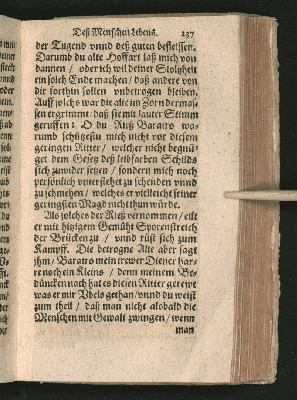 Deß Menschen Lebens. 237
der Tugend vnnd deß guten befleissen.
Darumb du alte Hoffart laß mich von
dannen / oder ich wil deiner Stoltzheit
ein solch Ende machen / daß andere von
dir forthin sollen vnbetrogen bleiben.
Auff solchs war die alt im Zorn dermas-
sen ergrimmt / daß sie mit lauter Stimm
geruffen: O du Rieß Baratro wa-
rumb schützestu mich nicht vor diesem
geringen Ritter / welcher nicht begnü-
get dem Gesetz deß leibfarben Schilds
sich zuwider setzen / sondern mich noch
persönlich vnterstehet zu schenden vnnd
zu schmehen / welches er vielleicht seiner
geringsten Magd nicht thun würde.
Als solches der Rieß vernommen / eilt
er mit hitzigem Gemüht Sporenstreich
der Brücken zu / vnnd rüst sich zum
Kampff. Die betrogne Alte aber sagt
ihm / Baratro mein trewer Diener har-
re noch ein Kleins / denn meinem Be-
düncken nach hat es diesen Ritter gerewt
was er mir Vbels gethan / vnnd du weist
zum theil / daß man nicht alsbald die
Menschen mit Gewalt zwingen / wenn
man